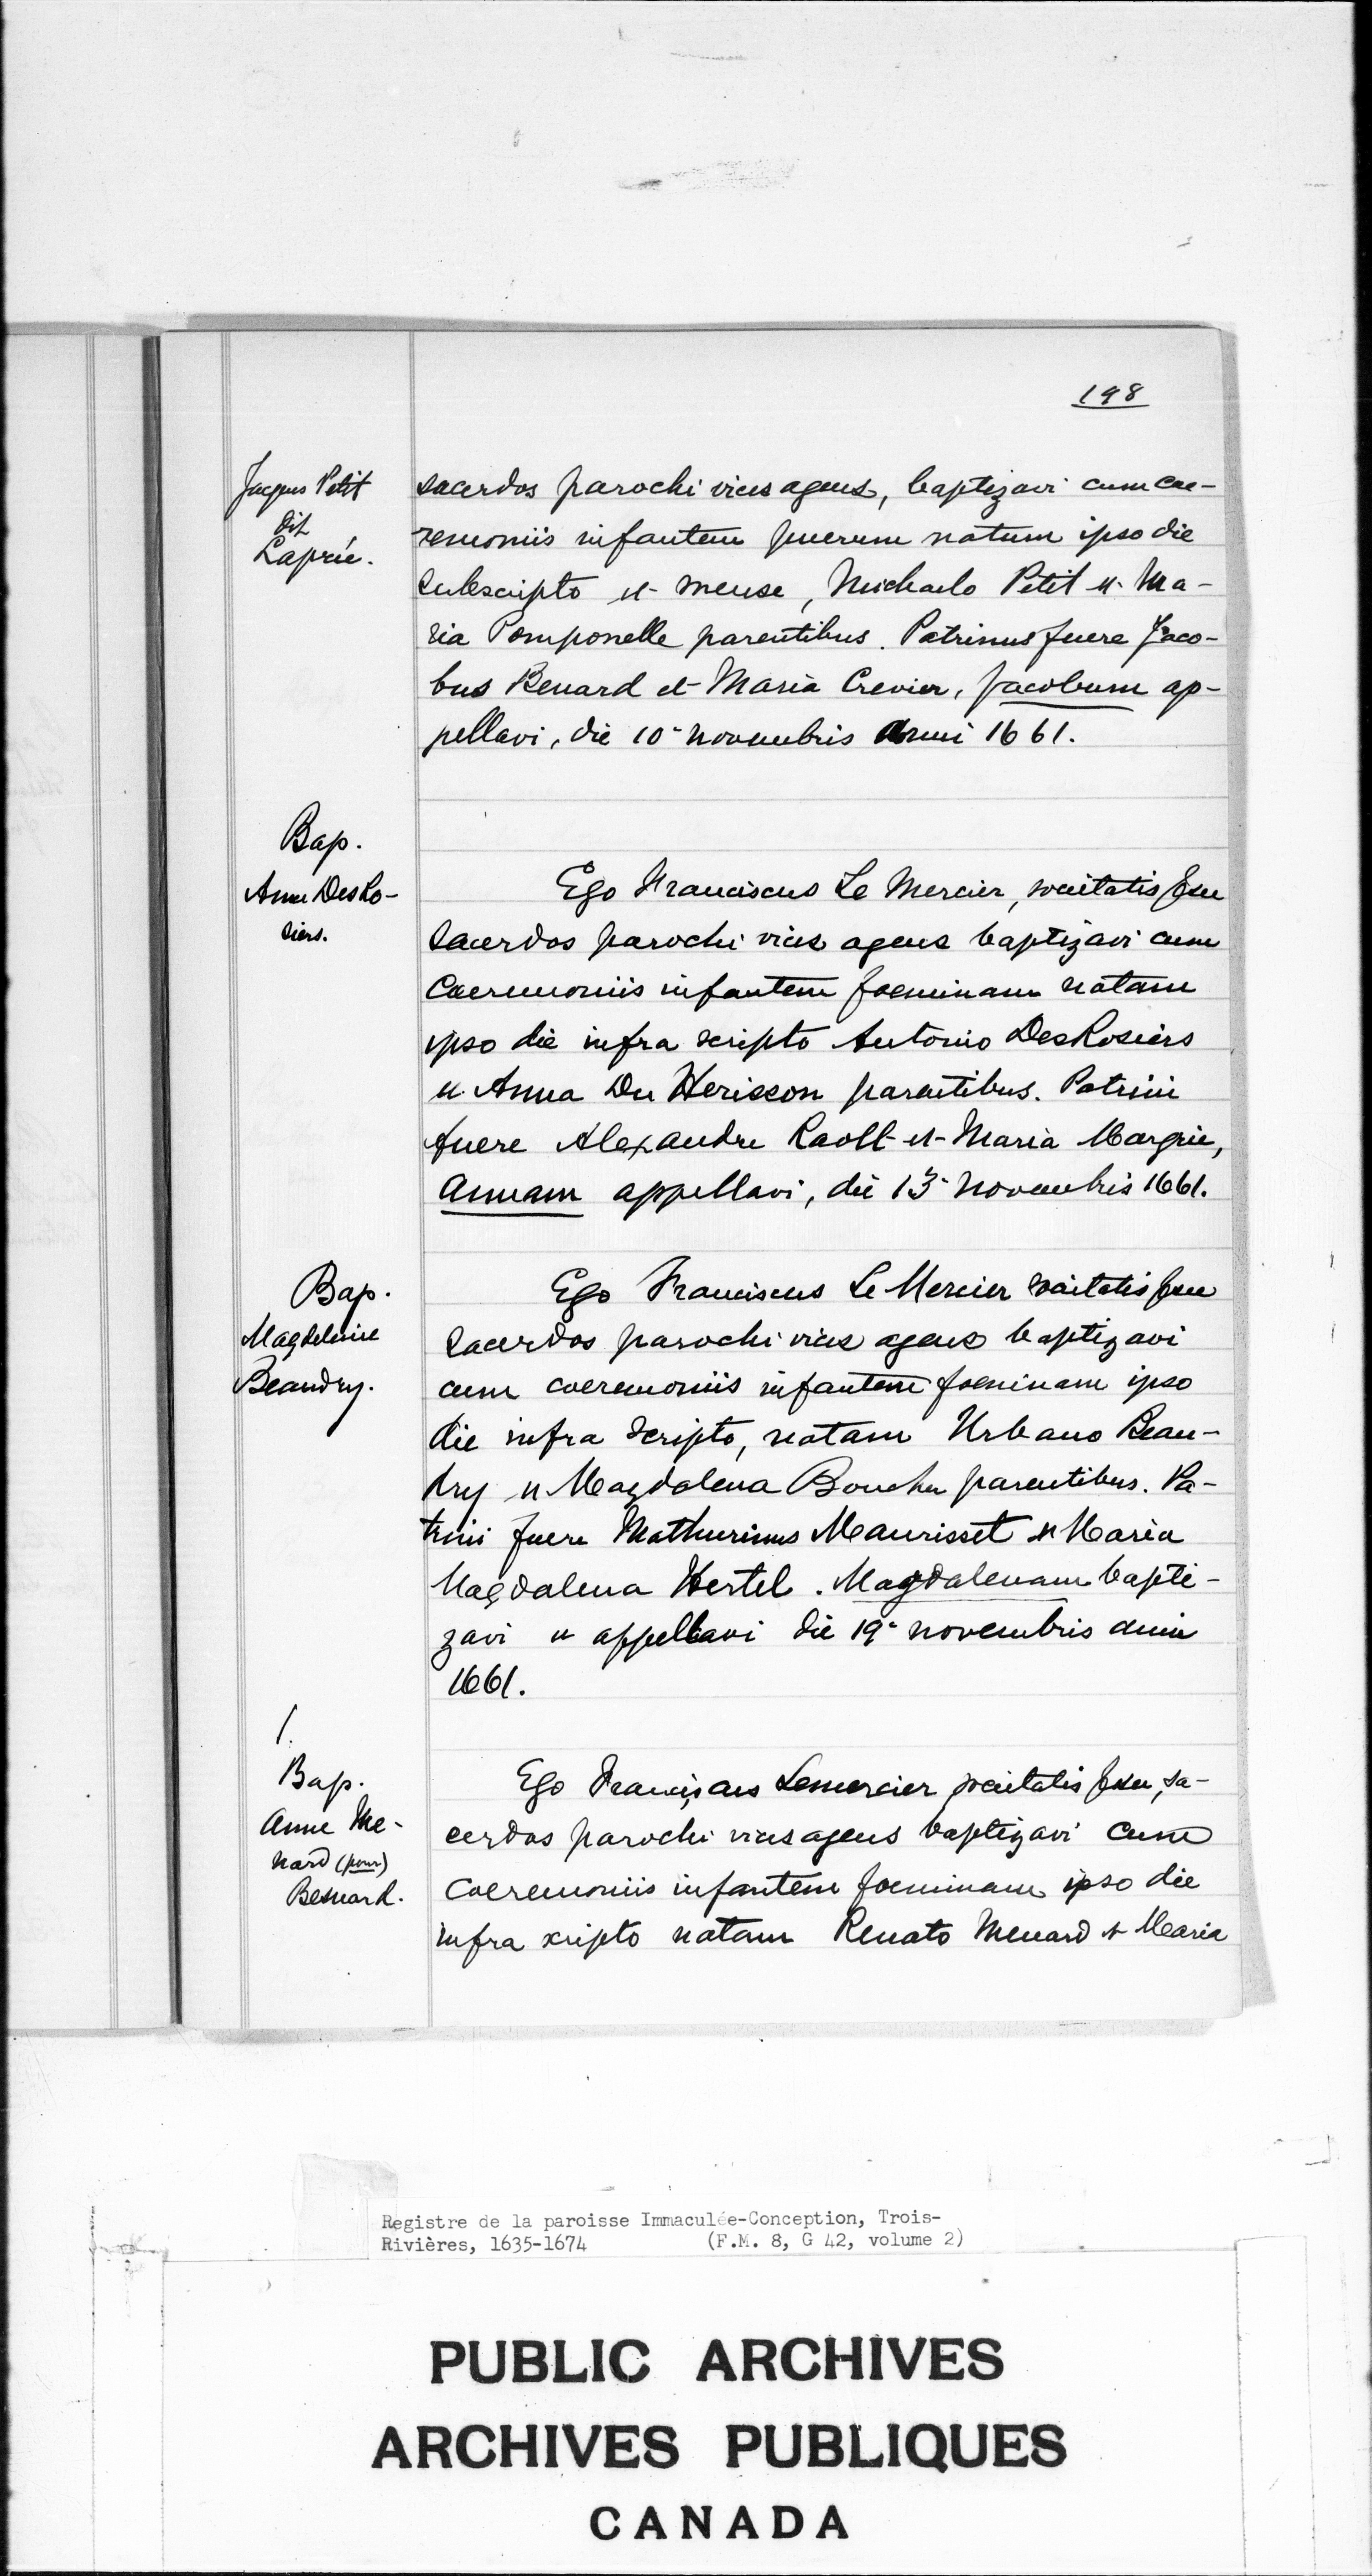 198
Jacques Petit
dit
Laprée.
sacerdos parochi vices agens, baptizavi cum cae-
remoniis infantem puerum natum ipso die
subscripto et mense, Michaelo Petit et Ma-
ria Pomponelle parentibus. Patrinus fuere Jaco-
bus Benard et Maria Crevier, Jacobum ap-
pellavi, die 10a novembris anni 1661.
Bap.
Anne DesRo-
siers.
Ego Franciscus Le Mercier, societatis Jesu
sacerdos parochi vices agens baptizavi cum
caeremoniis infantem foeminam natam
ipso die infra scripto Antonio DesRosiers
et Anna Du Herisson parentibus. Patrini
fuere Alexandre Raolt et Maria Margrie,
Annam appellavi, die 13a novembris 1661.
Bap.
Magdeleine
Beaudry.
Ego Franciscus Le Mercier societatis Jesu
sacerdos parochi vices agens baptizavi
cum coeremoniis infantem foeminam ipso
die infra scripto, natam Urbano Beau-
dry et Magdalena Boucher parentibus. Pa-
trini fuere Mathurinus Maurisset et Maria
Magdalena Hertel. Magdalenam bapti-
zavi et appellavi die 19a novembris anni
1661.
1.
Bap.
Anne Me-
nard (pour)
Besnard.
Ego Franciscus Lemercier societatis Jesu, sa-
cerdos parochi vices agens baptizavi cum
coeremoniis infantem foeminam ipso die
infra scripto natam Renato Menard et Maria
Registre de la paroisse Immaculée-Conception, Trois-
Rivières, 1635-1674 (F.M. 8, G 42, volume 2)
PUBLIC ARCHIVES
ARCHIVES PUBLIQUES
CANADA